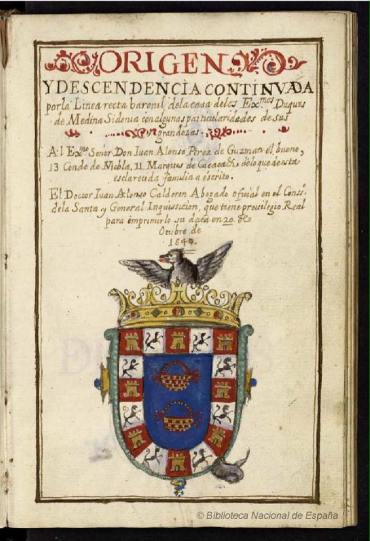 ORIGEN
Y DESCENDENCIA CONTINVADA
por la Linea recta baronil de la casa de los Exmos Duques
de Medina Sidonia con algunas particularidades de sus
grandezas.
Al Exmo Señor Don Iuan Alonso Perez de Guzman el bueno,
13 Conde de Niebla, 11 Marques de de lo que de esta
esclarecida familia a escrito.
El Doctor Iuan Alonso Calderon Abogado oficial en el Consº
de la Santa y General Inquissicion, que tiene previlegio Real
para imprimirlo su data en 20 de
Otubre de
164
© Biblioteca Nacional de España